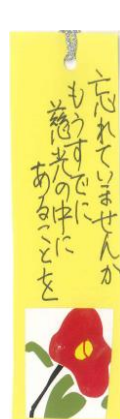 忘れていませんか
もうすでに
慈光の中に
あることを